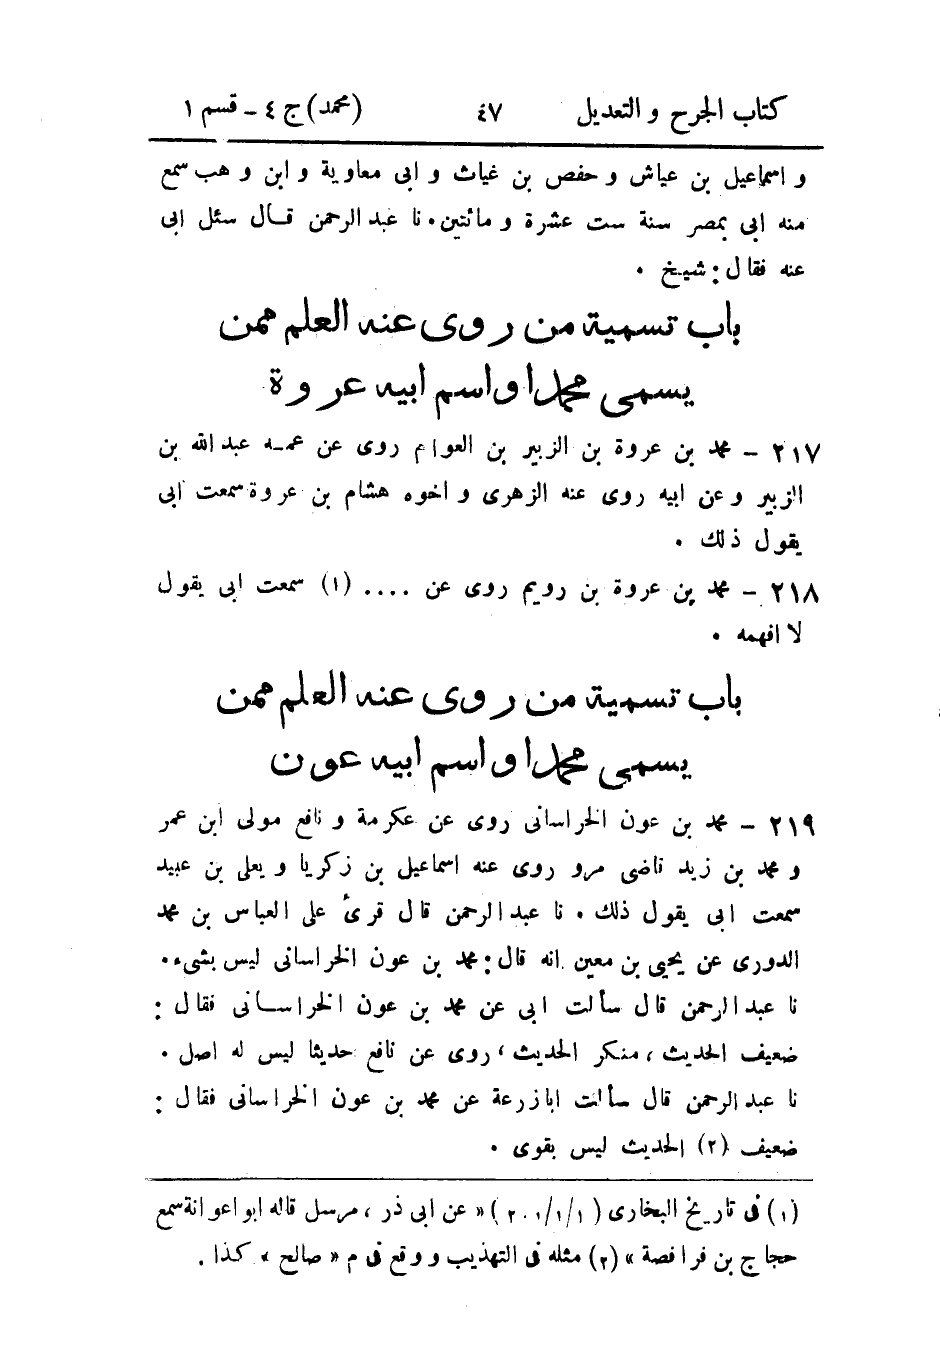 كتاب الجرح و التعديل ٤٧ (محمد) ج ٤ - قسم ١
و اسماعيل بن عياش و حفص بن غياث و ابى معاوية و ابن و هب سمع
منه ابى بمصر سنة ست عشرة و مائتين. نا عبد الرحمن قال سئل ابى
عنه فقال: شيخ .
باب تسمية من روى عنه العلم ممن
يسمى محمدا و اسم ابيه عروة
٢١٧ - محمد بن عروة بن الزبير بن العوام روى عن عمه عبد الله بن
الزبير و عن ابيه روى عنه الزهرى و اخوه هشام بن عروة سمعت ابى
يقول ذلك .
٢١٨ - محمد بن عروة بن رويم روى عن .... (١) سمعت ابى يقول
لا افهمه .
باب تسمية من روى عنه العلم ممن
يسمى محمدا و اسم ابيه عون
٢١٩ - محمد بن عون الخراسانى روى عن عكرمة و نافع مولى ابن عمر
و محمد بن زيد قاضى مرو روى عنه اسماعيل بن زكريا و يعلى بن عبيد
سمعت ابى يقول ذلك . نا عبد الرحمن قال قرئ على العباس بن محمد
الدورى عن يحيى بن معين انه قال: محمد بن عون الخراسانى ليس بشىء.
نا عبد الرحمن قال سألت ابى عن محمد بن عون الخراسانى فقال :
ضعيف الحديث ، منكر الحديث ، روى عن نافع حديثا ليس له اصل .
نا عبد الرحمن قال سألت ابا زرعة عن محمد بن عون الخراسانى فقال :
ضعيف (٢) الحديث ليس بقوى .
(١) فى تاريخ البخارى (١/١/٢٠١) « عن ابى ذر ، مرسل قاله ابو اعوانة سمع
حجاج بن فرافصة » (٢) مثله فى التهذيب و وقع فى م « صالح » كذا .